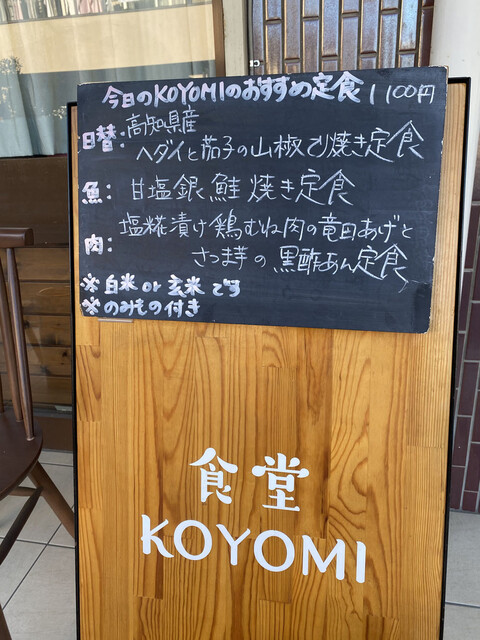 今日のKOYOMIのおすすめ定食 1100円
日替:高知県産
ヘダイと茄子の山椒てり焼き定食
魚:甘塩銀鮭焼き定食
肉:塩糀漬け鶏むね肉の竜田あげと
さつま芋の黒酢あん定食
※白米or玄米です
※のみもの付き
食堂
KOYOMI